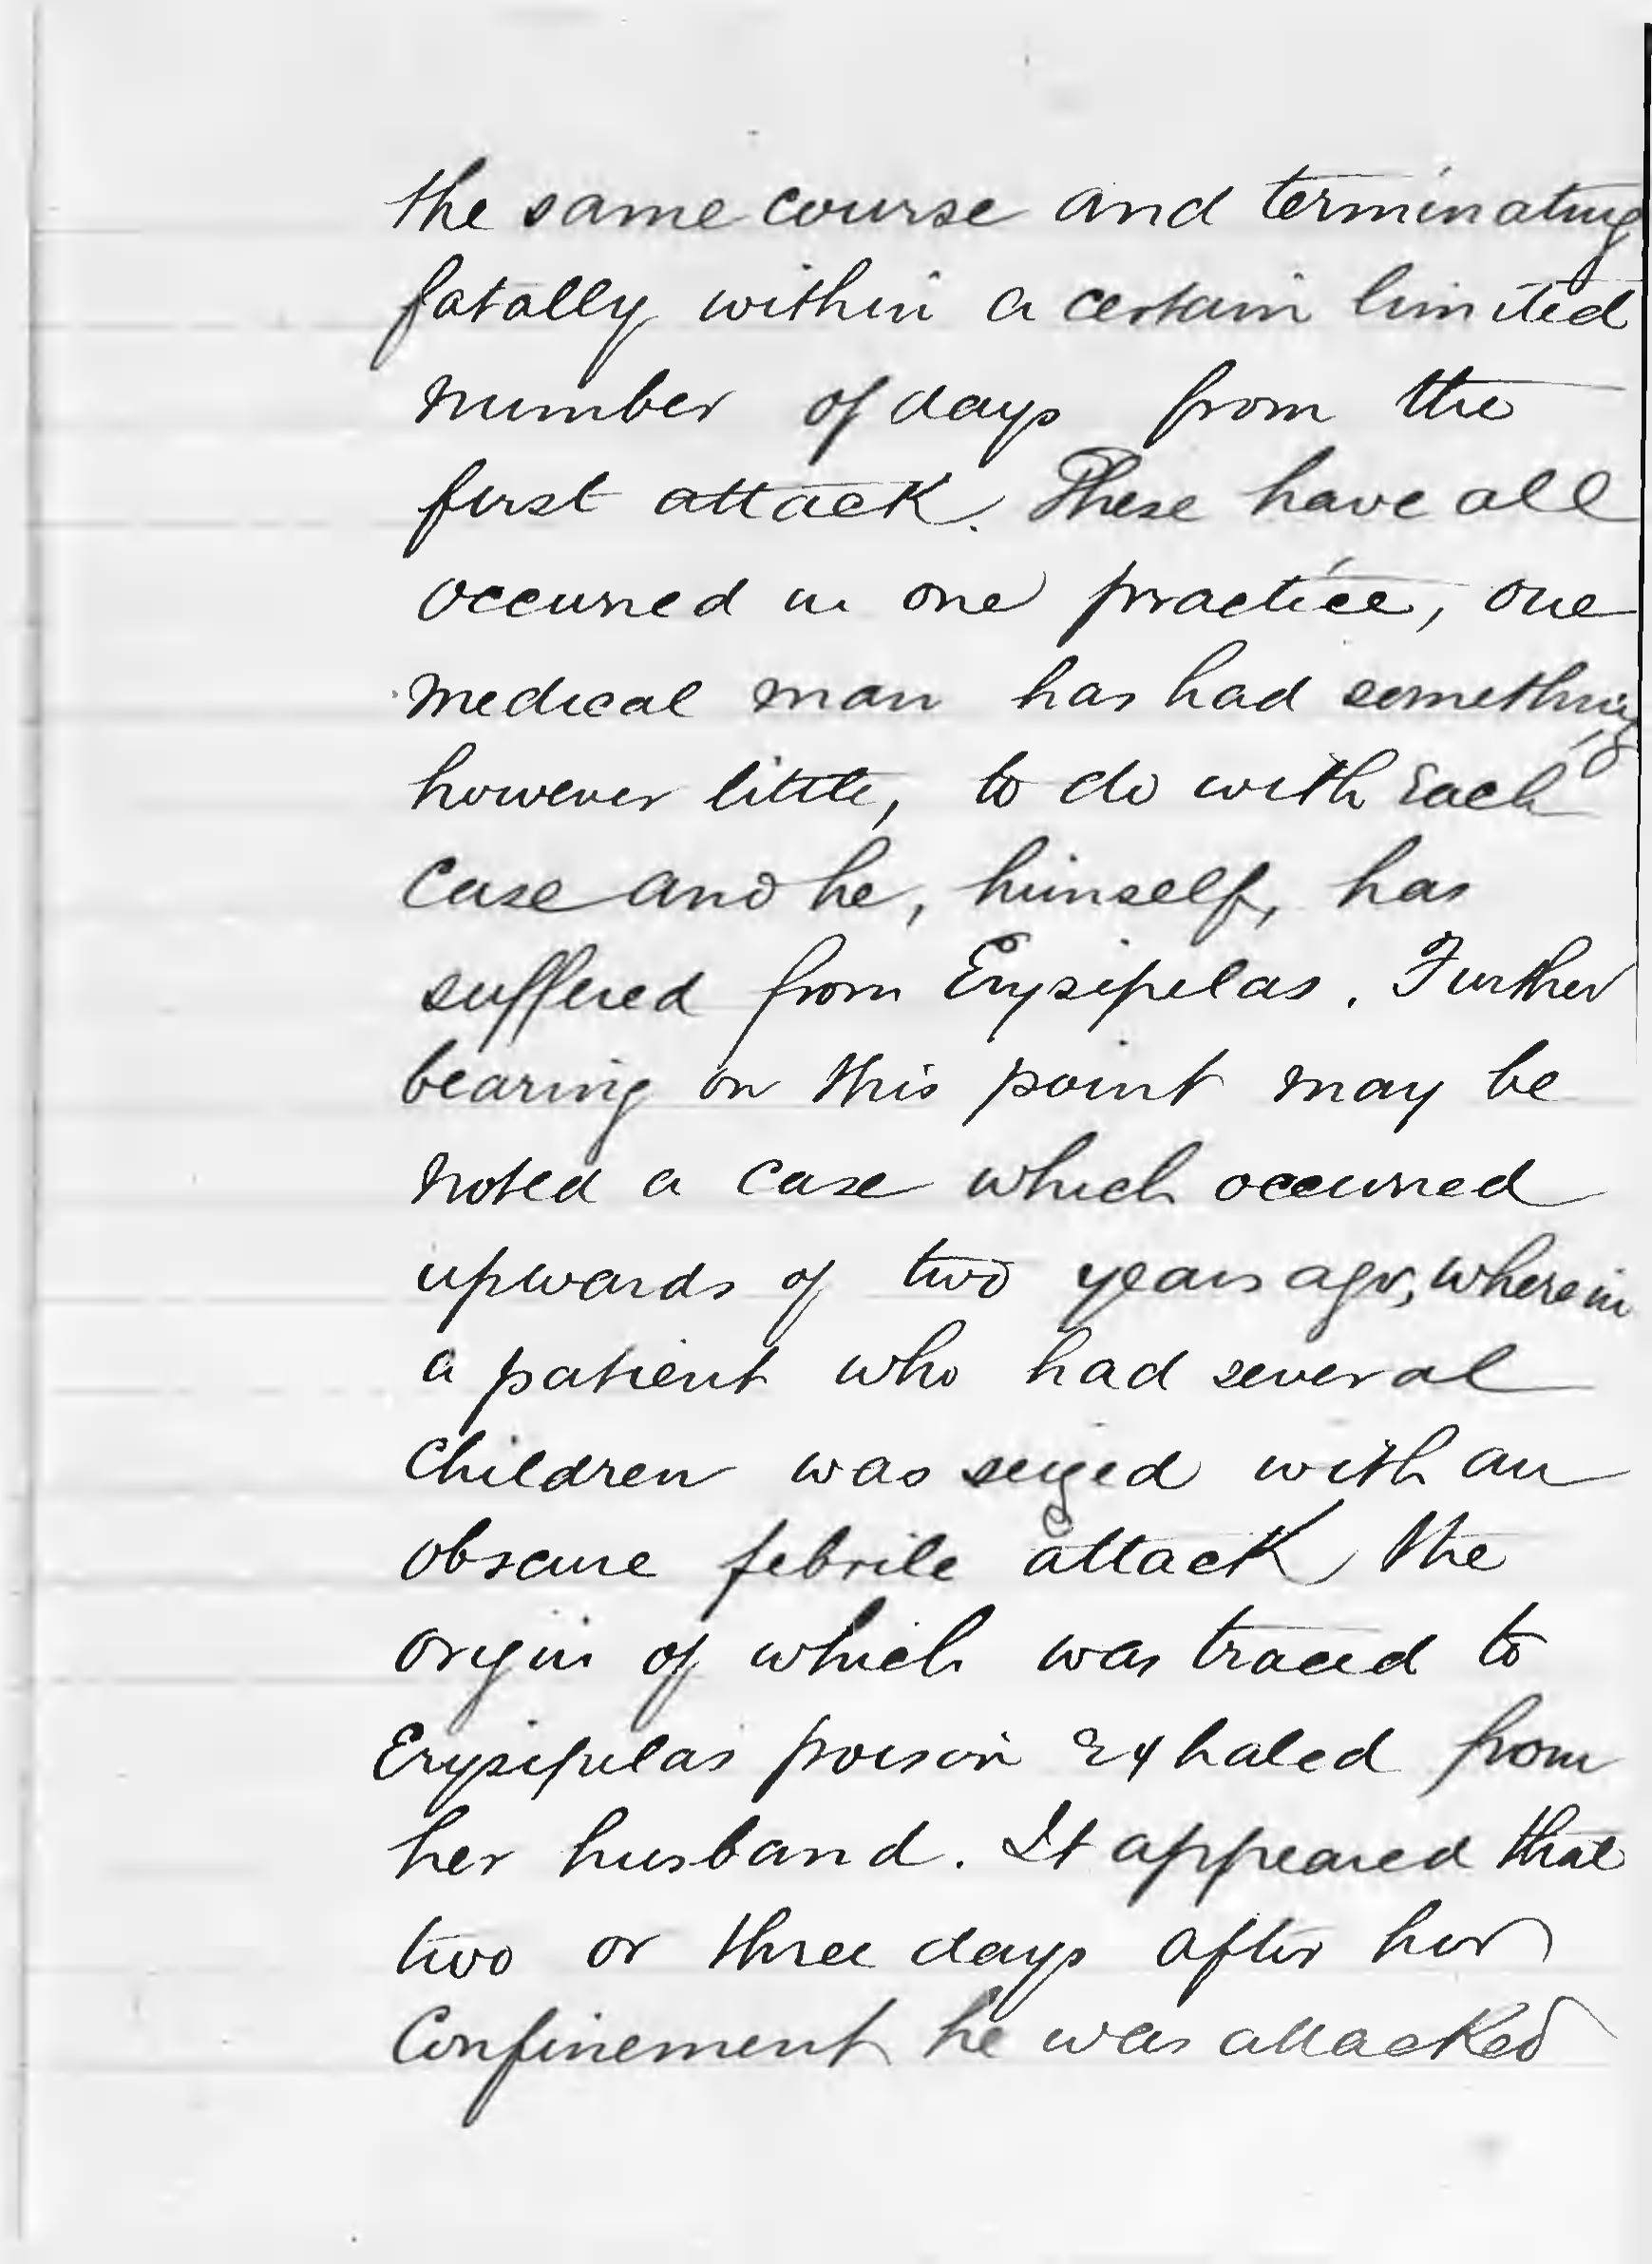 the same course and terminating
fatally within a certain limited
number of days from the
first attack. These have all
occurred in one practice, one
medical man has had something,
however little, to do with each
case and he, himself, has
suffered from Erysipelas. Further
bearing on this point may be
noted a case which occurred
upwards of two years ago, wherein
a patient who had several
children was seized with an
obscure febrile attack, the
origin of which was traced to
Erysipelas poison exhaled from
her husband. It appeared that
two or three days after her
Confinement he was attacked